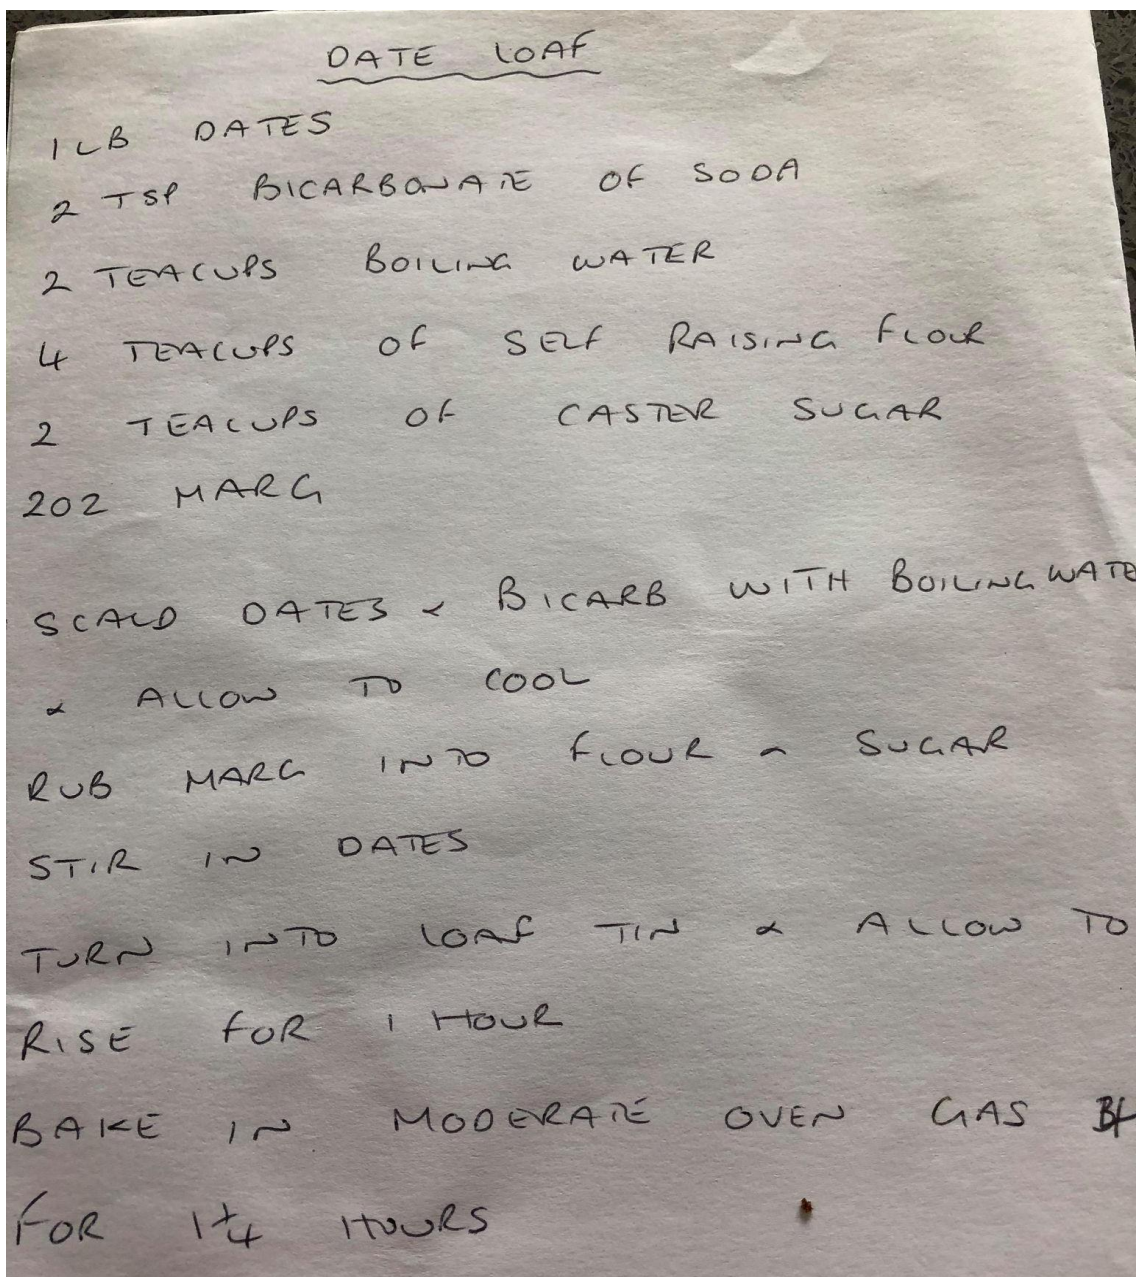 DATE LOAF
1LB DATES
2 TSP BICARBONATE OF SODA
2 TEACUPS BOILING WATER
4 TEACUPS OF SELF RAISING FLOUR
2 TEACUPS OF CASTER SUGAR
2OZ MARG
SCALD DATES & BICARB WITH BOILING WATE
& ALLOW TO COOL
RUB MARG INTO FLOUR & SUGAR
STIR IN DATES
TURN INTO LOAF TIN & ALLOW TO
RISE FOR 1 HOUR
BAKE IN MODERATE OVEN GAS
FOR 1 1/4 HOURS